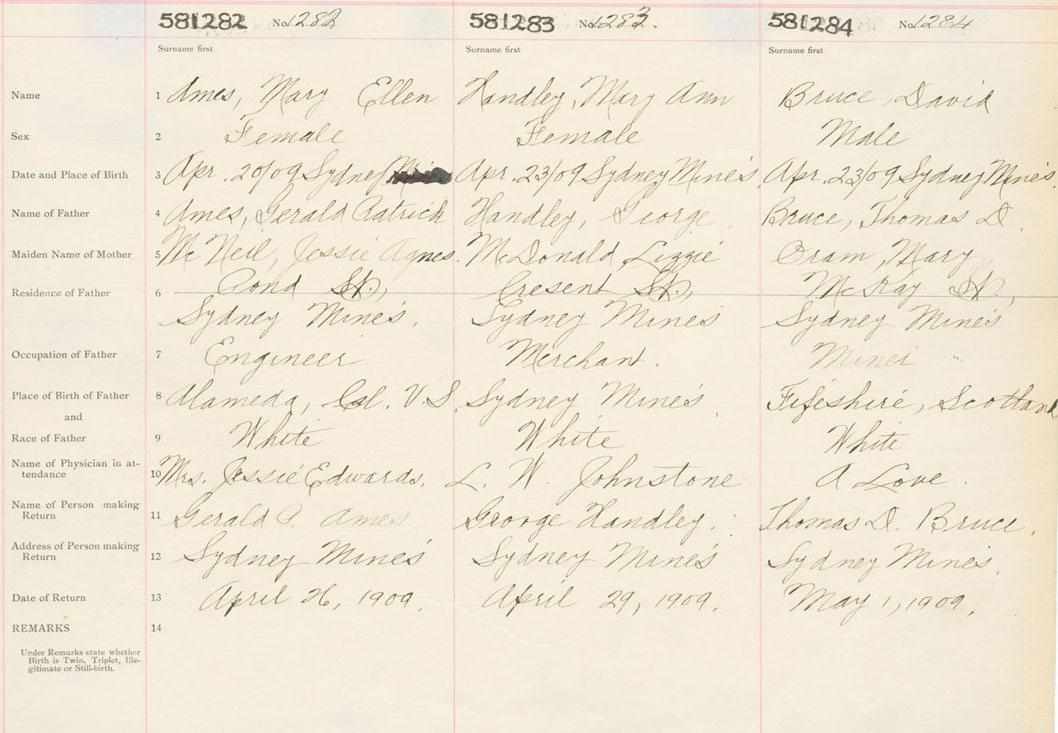 581282 No. 1282 581283 No. 1283. 581284 No. 1284
Surname first Surname first Surname first
Name 1 Ames, Mary Ellen Handley, Mary Ann Bruce, David
Sex 2 Female Female Male
Date and Place of Birth 3 Apr. 20/09 Sydney Apr. 23/09 Sydney Mines. Apr. 23/09 Sydney Mines.
Name of Father 4 Ames, Gerald Patrick Handley, George. Bruce, Thomas D.
Maiden Name of Mother 5 McNeil, Jessie Agnes. McDonald Lizzie Oram, Mary
Residence of Father 6 Pond St, Cresent St, McKay St.,
Sydney Mines. Sydney Mines Sydney Mines
Occupation of Father 7 Engineer Merchant. Miner
Place of Birth of Father 8 Alameda, Cal. U.S. Sydney Mines. Fifeshire, Scotland
and
Race of Father 9 White White White
Name of Physician in at-
tendance 10 Mrs. Jessie Edwards. L. W. Johnstone A Love.
Name of Person making
Return 11 Gerald P. Ames George Handley. Thomas D. Bruce.
Address of Person making
Return 12 Sydney Mines Sydney Mines Sydney Mines.
Date of Return 13 April 26, 1909. April 29, 1909. May 1, 1909.
REMARKS 14
Under Remarks state whether
Birth is Twin, Triplet, Ille-
gitimate or Still-birth.